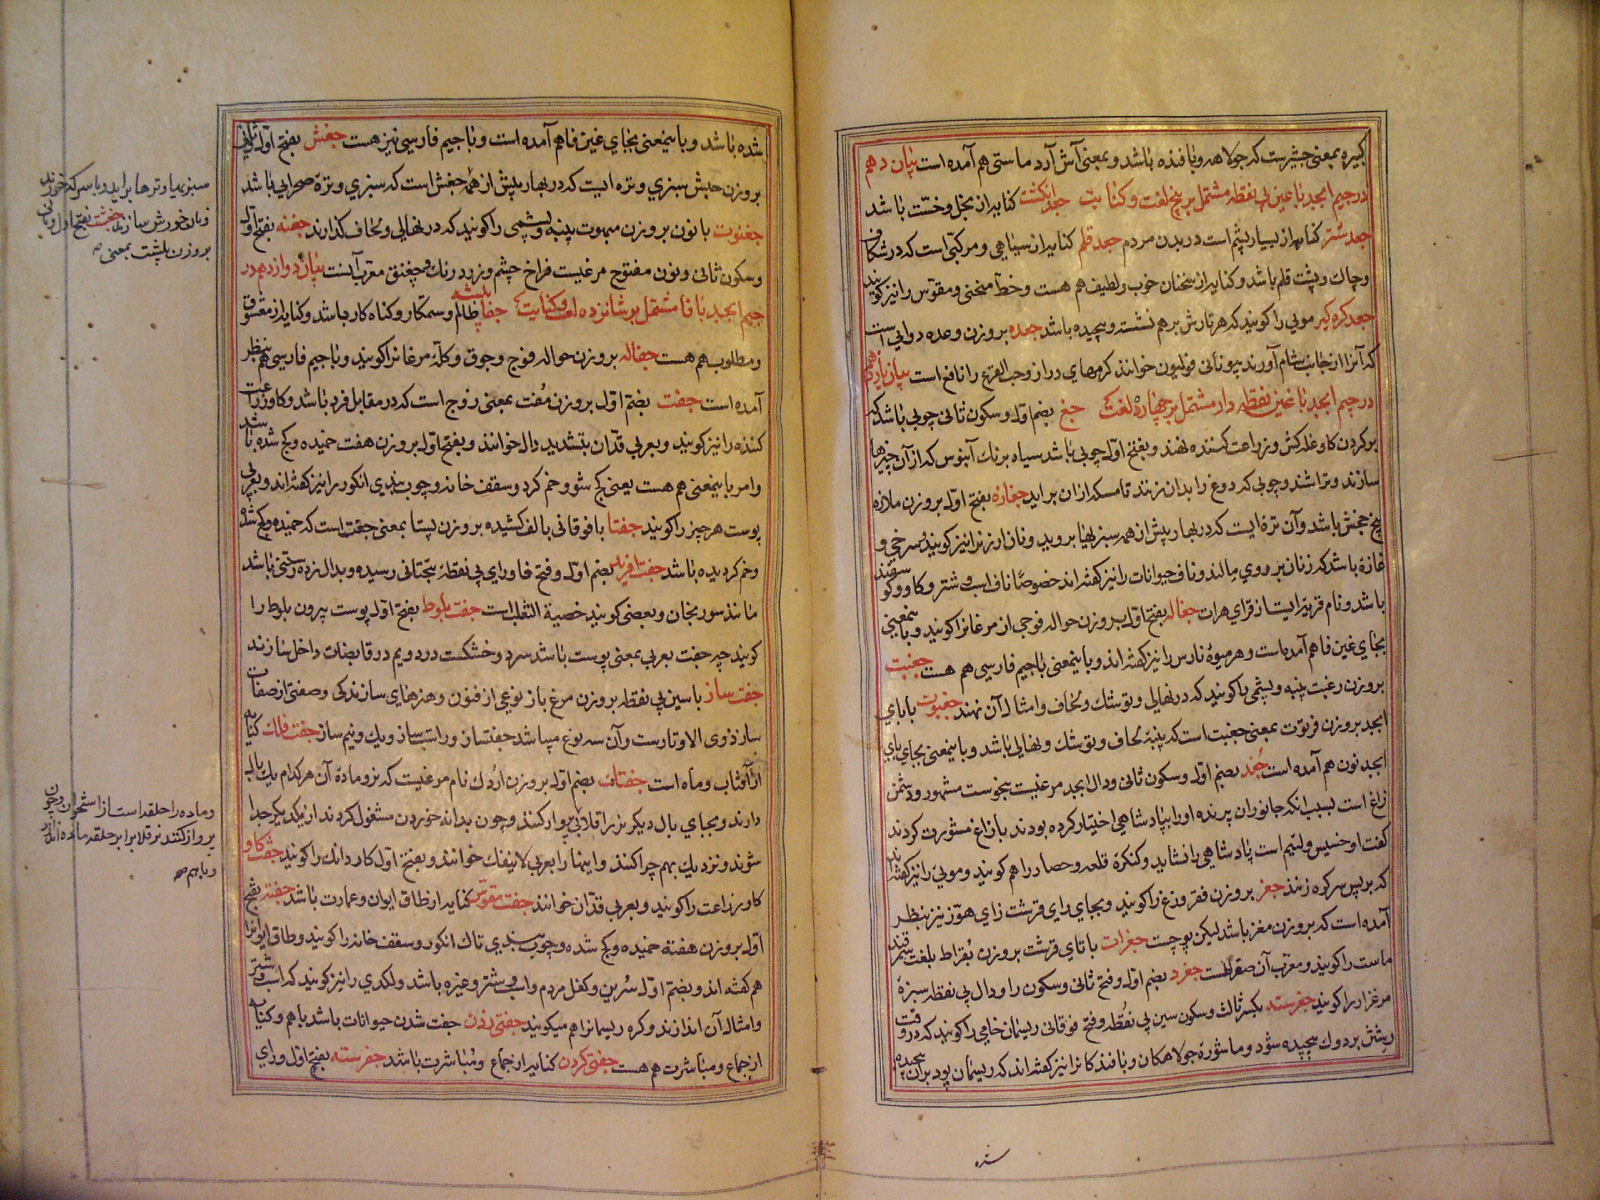 کبیره بمعنی جیثرست که جولاهه و بافنده باشد و بمعنی آش آرد ماستی هم آمده است بیان دهم
در جیم ابجد با عین بی نقطه مشتمل بر پنج لغت و کنایت جعد انگشت کنایه از بخل و خست باشد
جعد شتر کنایه از بسیار پشم است در بدن مردم جعد قلم کنایه از سیاهی و مرکبی است که در شکاف
و چاک و پشت قلم باشد و کنایه از سخنان خوب و لطیف هم هست و خط منحنی و مقوس را نیز گویند
جعد کره کیر مویی را گویند که هر تارش بر هم نشسته و پیچیده باشد جعده بروزن وعده دوایی است
که آنرا از جانب شام آورند بیونانی فولیون خوانند کرمهای دراز و حب القرع را نافع است بیان یازدهم
در جیم ابجد با غین نقطه دار مشتمل بر چهارده لغت جغ بضم اول و سکون ثانی چوبی باشد که
بر گردن گاو غله کش و زراعت کننده نهند و بفتح اول چوبی باشد سیاه برنگ آبنوس که از آن چیزها
سازند و تراشند و چوبی که دوغ را بدان زنند تا مسکه از ان براید جغازه بفتح اول بروزن ملازه
بیخ جغش باشد و آن تره ایست که در بهار پیش از همه سبزیها بروید و نان ارزن را نیز گویند و سرخی و
غازه باشد که زنان بر روی مالند و ناف حیوانات را نیز گفته اند خصوصا ناف اسب و شتر و گاو و گوسفند
باشد و نام قریه ایست از قرای هرات جغاله بفتح اول بروزن حواله فوجی از مرغانرا گویند و باینمعنی
بجای غین فا هم آمده است و هر میوهٔ نارس را نیز گفته اند و باینمعنی با جیم فارسی هم هست جغبت
بروزن رغبت پنبه و پشمی را گویند که در نهالی و توشک و لحاف و امثال آن نهند جغبوت با بای
ابجد بروزن فرتوت بمعنی جغبت است که پنبهٔ لحاف و توشک و نهالی باشد و باینمعنی بجای بای
ابجد نون هم آمده است جغد بضم اول و سکون ثانی و دال ابجد مرغیست بنحوست مشهور و دشمن
زاغ است بسبب آنکه جانوران پرنده او را بپادشاهی اختیار کرده بودند با زاغ مشورت کردند
گفت او خسیس و لئیم است پادشاهی را نشاید و کنگرهٔ قلعه و حصار را هم گویند و مویی را نیز گفته اند
که بر پس سر گره زنند جغز بروزن فقر وزغ را گویند و بجای رای قرشت زای هوز نیز بنظر
آمده است که بروزن مغز باشد لیکن جغرات با تای قرشت بروزن بقراط بلغت سمرقند
ماست را گویند و معرب آن صقراطست جغرد بضم اول و فتح ثانی و سکون را و دال بی نقطه سبزه
مرغزار را گویند جغرسته بکسر ثالث و سکون سین بی نقطه و فتح فوقانی ریسمان خامی را گویند که در وقت
رشتن بر دوک پیچیده شود و ماشورهٔ جولاهگان و بافندگانرا نیز گفته اند که ریسمان پود بر آن پیچیده
شده
شده باشد و باینمعنی بجای غین فا هم آمده است و با جیم فارسی نیز هست جغش بفتح اول و ثانی
بروزن حبش سبزی و تره ایست که در بهار پیش از همه جغش است که سبزی و ترهٔ صحرایی باشد
جغنوت با نون بروزن مبهوت پنبه و پشمی را گویند که در نهالی و لحاف گذارند جغنه بفتح اول
و سکون ثانی و نون مفتوح مرغیست فراخ چشم و زرد رنگ و چغنق معرب آنست بیان دوازدهم در
جیم ابجد با فا مشتمل بر شانزده لغت و کنایت جفا پیشه ظالم و ستمکار و گناه کار باشد و کنایه از معشوق
و مطلوب هم هست جفاله بروزن حواله فوج و جوق و کلهٔ مرغانرا گویند و با جیم فارسی هم بنظر
آمده است جفت بضم اول بروزن مفت بمعنی زوج است که در مقابل فرد باشد و گاو زراعت
کننده را نیز گویند و بعربی فدان بتشدید دال خوانند و بفتح اول بروزن هفت خمیده و کج شده باشد
و امر باینمعنی هم هست یعنی کج شو و خم گرد و سقف خانه و چوب بندی انگور را نیز گفته اند و بعربی
پوست هر چیز را گویند جفتا با فوقانی بالف کشیده بروزن پستا بمعنی جفت است که خمیده و کج شده
و خم گردیده باشد جفت افرید بضم اول و فتح فا و رای بی نقطهٔ بتحتانی رسیده و بدال زده رستنی باشد
مانند سورنجان و بعضی گویند خصیة الثعلب است جفت بلوط بفتح اول پوست بیرون بلوط را
گویند چه جفت بعربی بمعنی پوست باشد سرد و خشکست در دویم در قابضات داخل سازند
جفت ساز با سین بی نقطه بروزن مرغ باز نوعی از فنون و هنرهای سازندگی و صفتی از صفات
ساز ذوی الاوتارست و آن سه نوع میباشد جفتساز و راست ساز و یک و نیم ساز جفت فلک کنایه
از آفتاب و ماه است جفتک بضم اول بروزن اردک نام مرغیست که نر و مادهٔ آن هر کدام یک بال
دارند و بجای بال دیگر نر را قلابی پرواز کنند و چون بدانه خوردن مشغول گردند از یکدیگر جدا
شوند و نزدیک بهم چرا کنند و اینها را بعربی لاینفک خوانند و بفتح اول کاردانک را گویند جفت گاو
گاو زراعت را گویند و بعربی فدان خوانند جفت مقوس کنایه از طاق ایوان و عمارت باشد جفته بفتح
اول بروزن هفته خمیده و کج شده و چوب بندی تاک انگور و سقف خانه را گویند و طاق ایوانرا
هم گفته اند و بضم اول سرین و کفل مردم و اسب و شتر و غیره باشد و لگدی را نیز گویند که اسب و شتر
و امثال آن اندازند و کره ریسمانرا هم میگویند جفتی زدن جفت شدن حیوانات باشد با هم و کنایه
از جماع و مباشرت هم هست جفتی کردن کنایه از جماع و مباشرت باشد جفرسته بفتح اول و رای
سبزیها و ترها براید و با سرکه خورند
و نان خورش سازند جغشت بفتح اول و ثانی
بروزن بلشت بمعنی
و ماده را حلقه است از استخوان و چون
پرواز کنند نر قلاب را بر حلقه ماده اندازد
و با هم